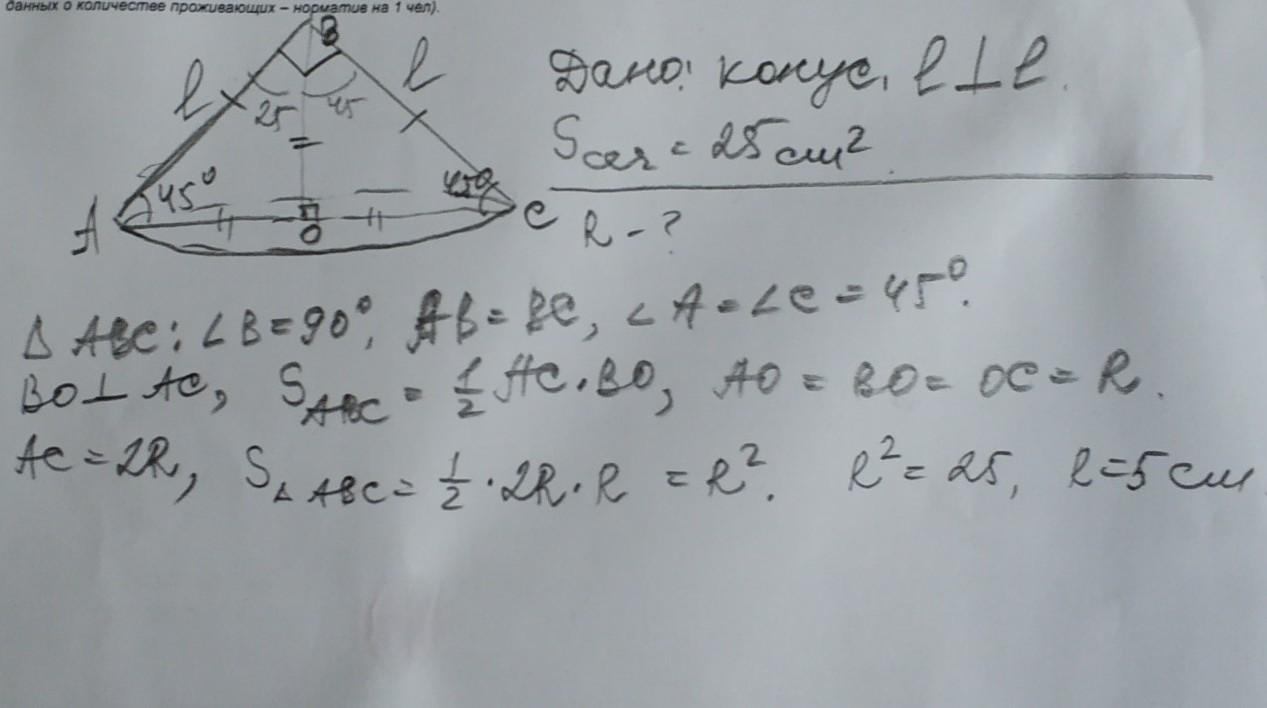 данных о количестве проживающих – норматив на 1 чел).
B
l l
25 45
45° 45°
A O C
Дано: конус, l⊥l.
Sсеч = 25 см²
R - ?
Δ ABC: ∠B = 90°, AB = BC, ∠A = ∠C = 45°.
BO⊥AC, S_ABC = 1/2 AC · BO, AO = BO = OC = R.
AC = 2R, S_Δ ABC = 1/2 · 2R · R = R². R² = 25, R = 5 см